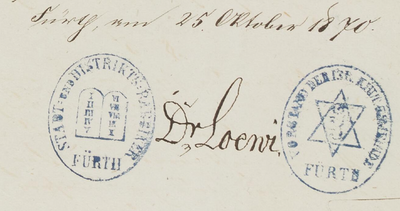 Fürth, am 25. Oktober 1870.
STADT- UND DISTRIKTS-RABBINER
I VI
II VII
III VIII
IV IX
V X
FÜRTH
Dr Loewi
VORSTAND DER ISR. KULTUSGEMEINDE
FÜRTH